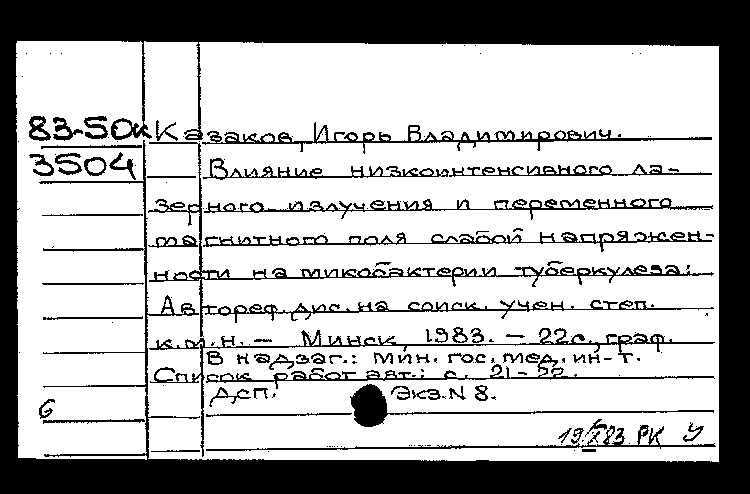 83-50к Казаков, Игорь Владимирович.
3504 Влияние низкоинтенсивного ла-
зерного излучения и переменного
магнитного поля слабой напряжен-
ности на микобактерии туберкулеза:
Автореф. дис. на соиск. учен. степ.
к.м.н. — Минск, 1983. — 22с., граф.
В надзаг.: Мин. гос. мед. ин-т.
Список работ авт.: с. 21-22.
Дсп. Экз. N 8.
6
19/X83 РК У